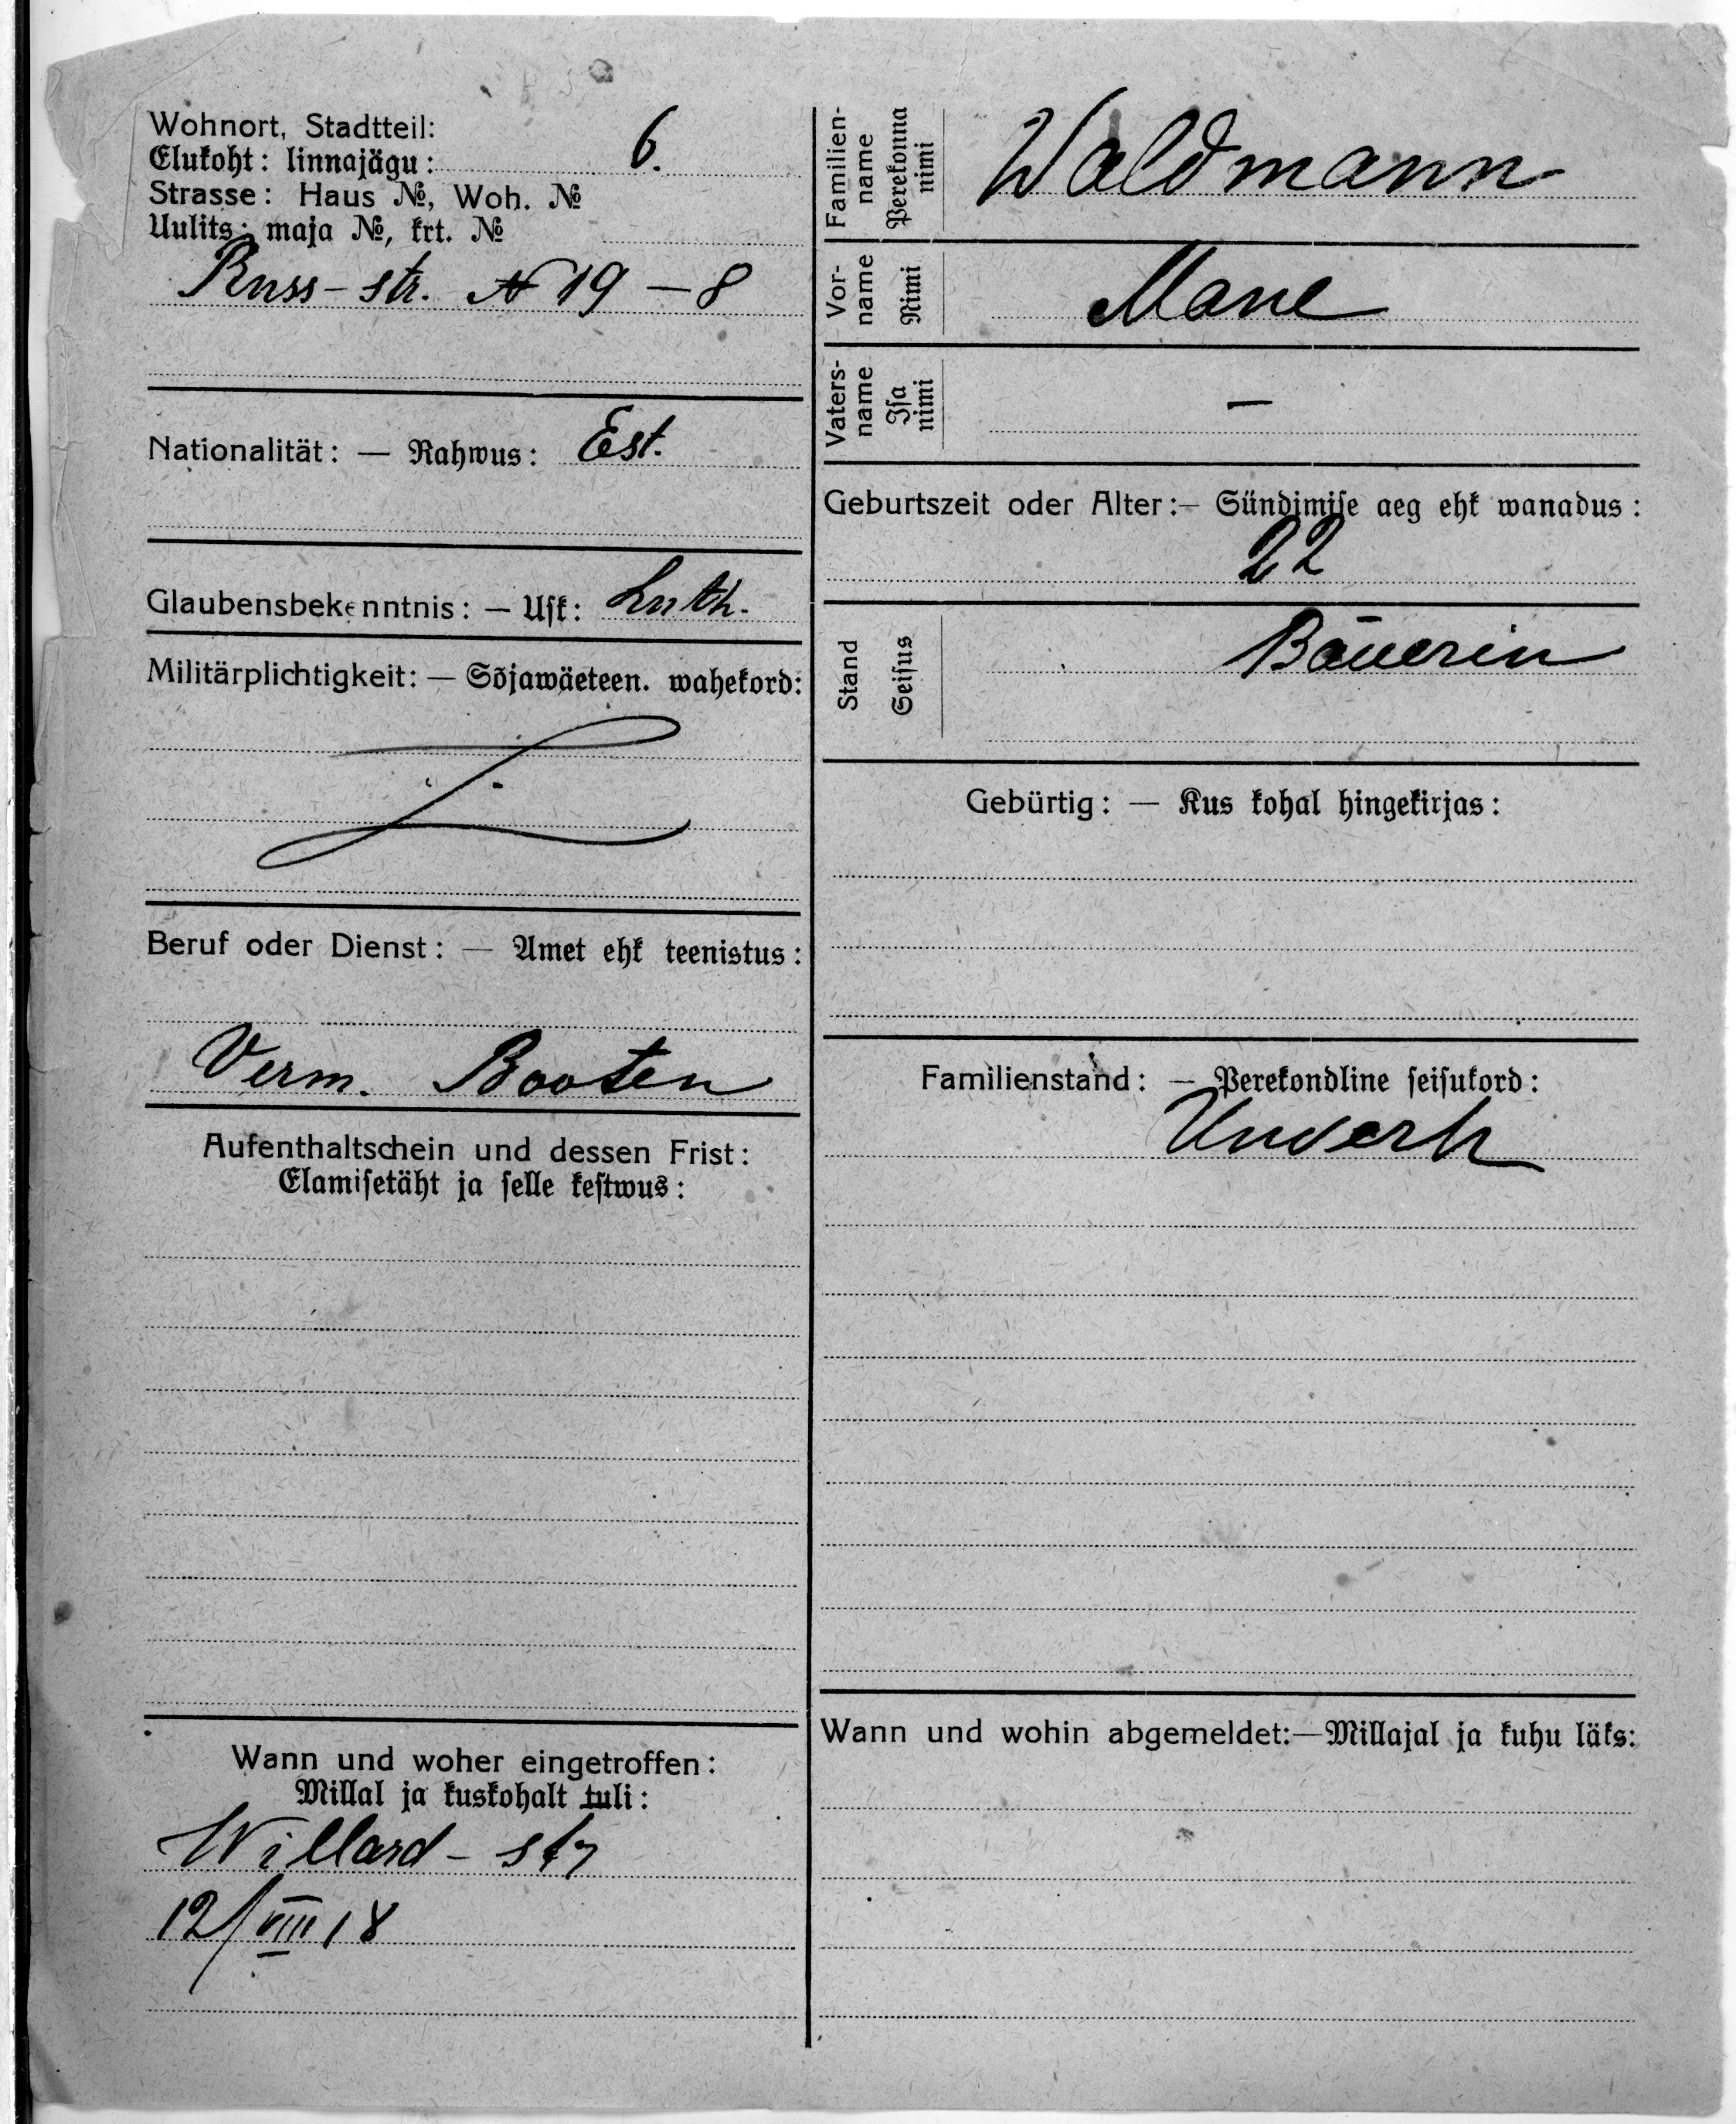 Wohnort, Stadtteil:
Elukoht: linnajägu: 6.
Strasse: Haus №, Woh. №
Uulits: maja №, krt. №
Russ-str. № 19 – 8
Nationalität: — Rahwus: Est.
Glaubensbekenntnis: — Usk: Luth.
Militärplichtigkeit: — Sõjawäeteen. wahekord:
Beruf oder Dienst: — Amet ehk teenistus:
Verm. Booten
Aufenthaltschein und dessen Frist:
Elamisetäht ja selle kestwus:
Wann und woher eingetroffen:
Millal ja kuskohalt tuli:
Willard - str
12/VIII 18
Familien-name Perekonna nimi Waldmann
Vor-name Nimi Marie
Vaters-name Isa nimi —
Geburtszeit oder Alter:— Sündimise aeg ehk wanadus:
22
Stand Seisus Bäuerin
Gebürtig: — Kus kohal hingekirjas:
Familienstand: — Perekondline seisukord:
Unverh
Wann und wohin abgemeldet:—Millajal ja kuhu läks: